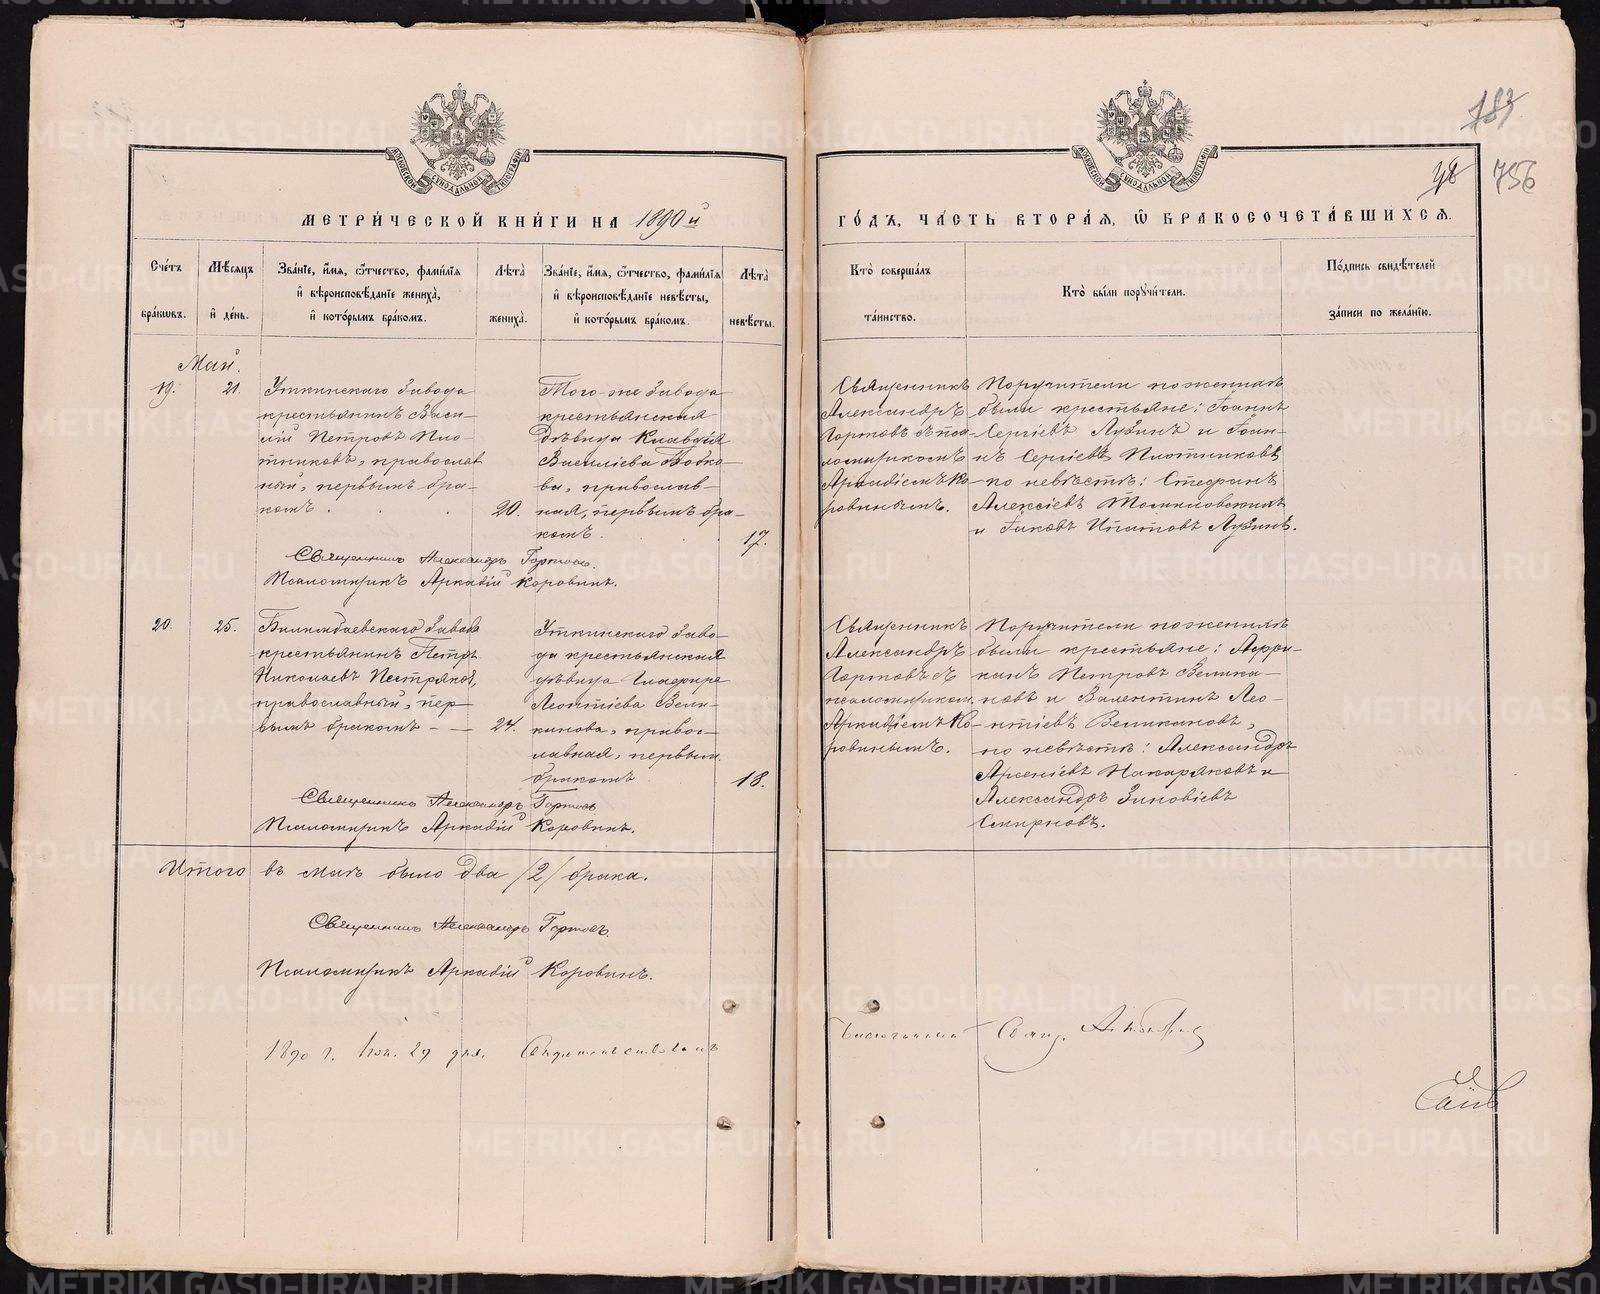 783
48 756
МОСКОВСКОЙ СѴНОДАЛЬНОЙ ТИПОГРАФІИ
МОСКОВСКОЙ СѴНОДАЛЬНОЙ ТИПОГРАФІИ
МЕТРИ́ЧЕСКОЙ КНИ́ГИ НА 1890й
ГО́ДЪ, ЧА́СТЬ ВТОРА́Я, Ѽ БРАКОСОЧЕТА́ВШИХСЯ.
Сче́тъ бра́кѡвъ.
Мѣ́сяцъ и҆ де́нь.
Зва́нїе, и҆́мя, ѻ҆́тчество, фами́лїя
и҆ вѣроисповѣ́данїе жениха̀,
и҆ кото́рымъ бра́комъ.
Лѣ́та̀ жениха̀.
Зва́нїе, и҆́мя, ѻ҆́тчество, фами́лїя
и҆ вѣроисповѣ́данїе невѣ́сты,
и҆ кото́рымъ бра́комъ.
Лѣ́та̀ невѣ́сты.
Кто̀ соверша́лъ
та́инство.
Кто̀ бы́ли порꙋчи́тели.
По́дпись свидѣ́телей
за́писи по жела́нїю.
Май.
19. 21.
Уткинскаго завода
крестьянинъ Васи-
лій Петровъ Пло-
тниковъ, православ
ный, первымъ бра-
комъ. 20.
Того-же завода
крестьянская
дѣвица Клавдія
Василіева Бобко-
ва, православ-
ная, первымъ бра-
комъ. 17.
Священникъ
Александръ
Гортовъ съ пса-
ломщикомъ
Аркадіемъ Ко-
ровинымъ.
Поручители по женихѣ
были крестьяне: Іоаннъ
Сергіевъ Лузинъ и Іоан-
нъ Сергіевъ Плотниковъ
по невѣстѣ: Стефанъ
Алексіевъ Томиловскихъ
и Іаковъ Ипатовъ Лузинъ.
Священникъ Александръ Гортовъ.
Псаломщикъ Аркадій Коровинъ.
20. 25.
Билимбаевскаго завода
крестьянинъ Петръ
Николаевъ Пестряковъ,
православный, пер-
вымъ бракомъ 24.
Уткинскаго заво-
да крестьянская
дѣвица Глафира
Леонтіева Вели-
канова, право-
славная, первым
бракомъ 18.
Священникъ
Александръ
Гортовъ съ
псаломщиком
Аркадіемъ Ко-
ровинымъ.
Поручители по женихѣ
были крестьяне: Афри-
канъ Петровъ Велика-
новъ и Валентинъ Лео-
нтіевъ Великановъ,
по невѣстѣ: Александръ
Арсеніевъ Макаряковъ и
Александръ Зиновіевъ
Смирновъ.
Священникъ Александръ Гортовъ
Псаломщикъ Аркадій Коровинъ.
Итого въ маѣ было два /2/ брака.
Священникъ Александръ Гортовъ.
Псаломщикъ Аркадій Коровинъ.
1890 г. 29 дня. Свидѣтельствовалъ
Благочинный Свящ.
METRIKI.GASO-URAL.RU